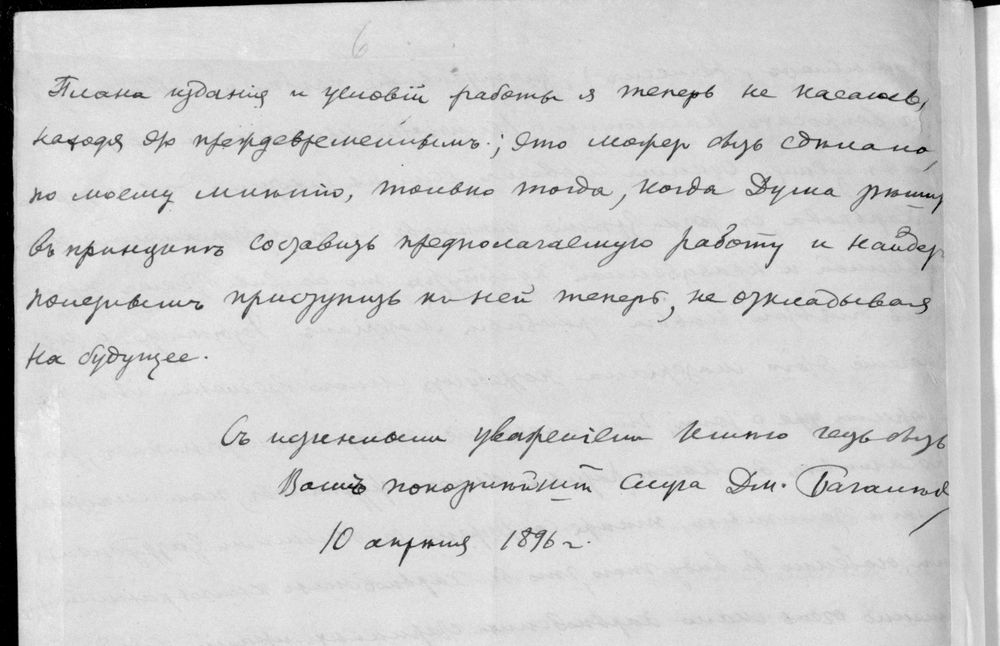 6
Плана изданія и условій работы я теперь не касаюсь,
находя это преждевременнымъ; это может быть сдѣлано,
по моему мнѣнію, только тогда, когда Дума рѣшит
въ принципѣ составить предполагаемую работу и найдет
полезнымъ приступить къ ней теперь, не откладывая
на будущее.
Съ истиннымъ уваженіемъ имѣю честь быть
Вашъ покорнѣйшій слуга Дм. Багалѣй
10 апрѣля 1896 г.